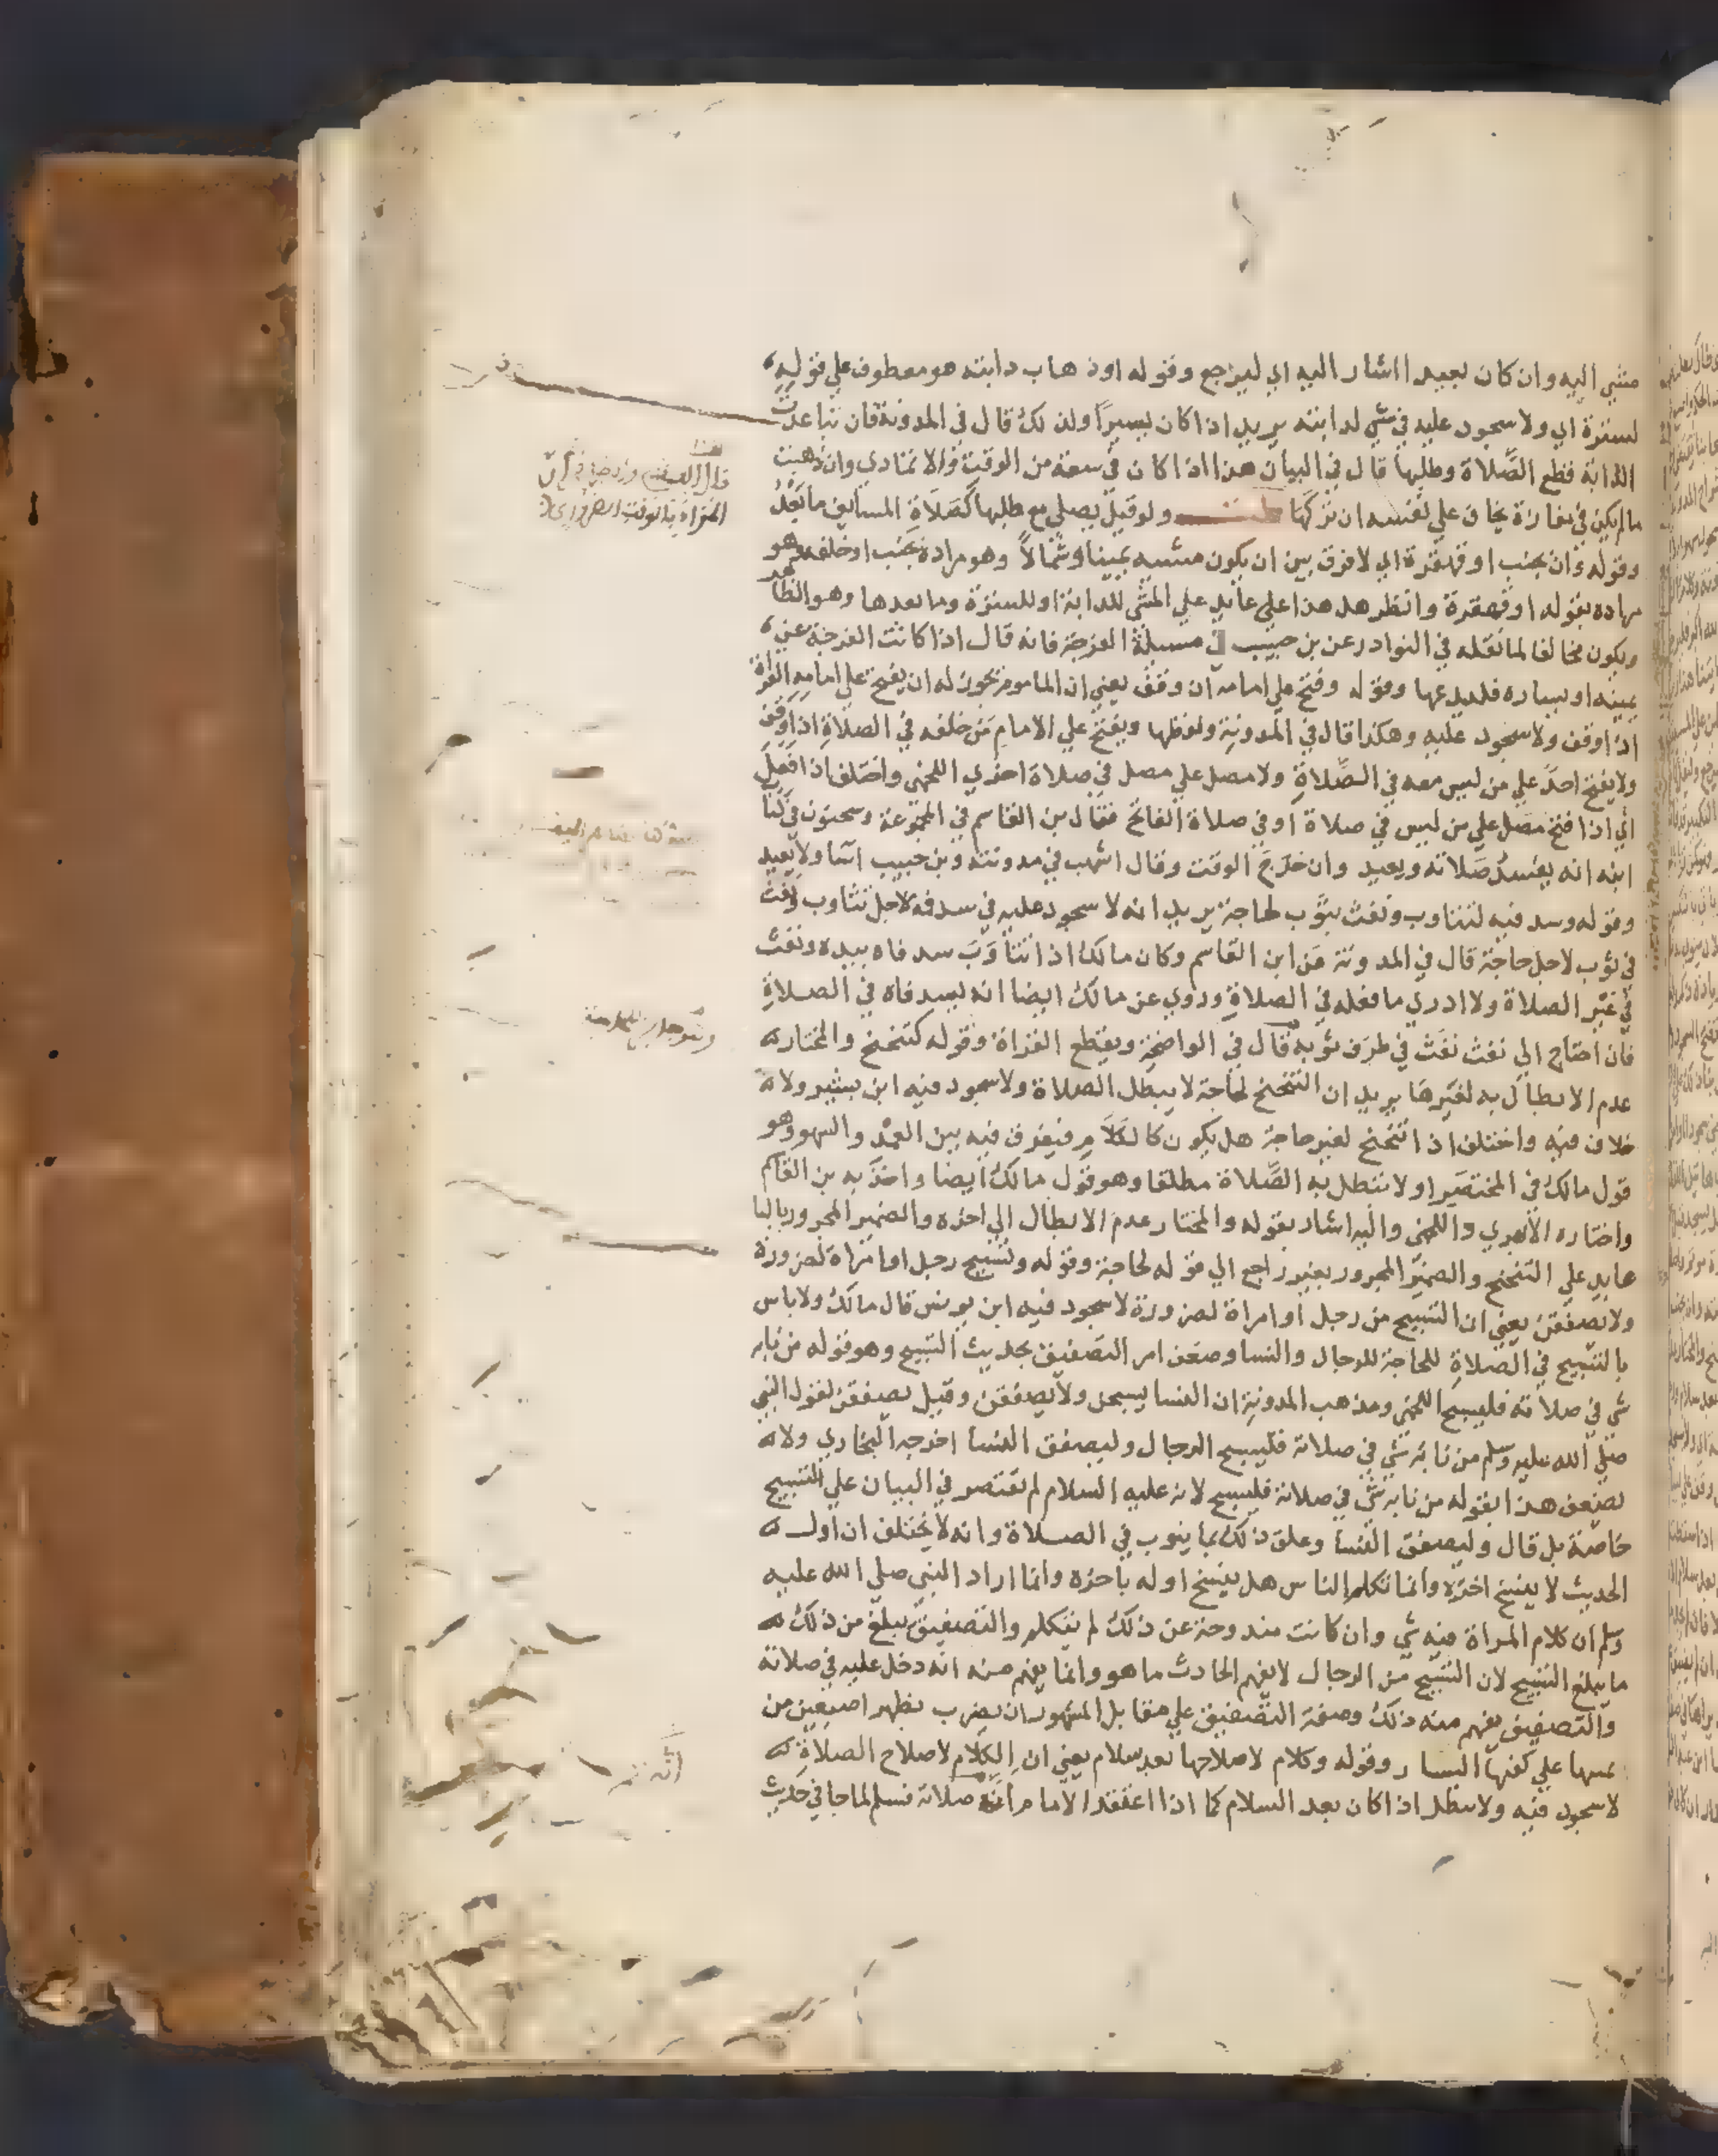 مشي اليه وان كان بعيدا اشار اليه اي ليرجع وقوله او ذهاب دابته هو معطوف علي قوله
لسترة اي ولا سجود عليه في مشي لدابته يريد اذا كان يسيرا ولذلك قال في المدونة فان تباعدت
الدابة قطع الصلاة وطلبها قال في البيان هذا اذا كان في سعة من الوقت والا تمادي وان ذهبت
مالم يكن في مفازة يخاف علي نفسه ان تركها ولو قيل يصلي مع طلبها كصلاة المسايف ما بعد
وقوله وان بجنب او قهقرة اي لا فرق بين ان يكون مشيه يمينا وشمالا وهو مراده بجنب او خلفه وهو
مراده بقوله او قهقرة وانظر هل هذا علي عايد علي المشي للدابة او للسترة وما بعدها وهو الظاهر
ويكون مخالفا لما نقله في النوادر عن بن حبيب في مسيلة الفرجة فانه قال اذا كانت الفرجة عن
يمينه او يساره فليدعها وقوله وفتح علي امامه ان وقف يعني ان الماموم يجوز له ان يفتح علي امامه القراة
اذا وقف ولا سجود عليه وهكذا قال في المدونة ولفظها ويفتح علي الامام من خلفه في الصلاة اذا وقف
ولا يفتح احد علي من ليس معه في الصلاة ولا مصل علي مصل في صلاة اخري اللخمي واختلف اذا فعل
اي اذا فتح مصل علي من ليس في صلاة او في صلاة الفاتح فقال بن القاسم في المجموعة وسحنون في كتاب
ابنه انه يفسد صلاته ويعيد وان خرج الوقت وقال اشهب في مدونته وبن حبيب اسا ولا يعيد
وقوله وسد فيه لتثاوب ونفث بثوب لحاجة يريد انه لا سجود عليه في سد فه لاجل تثاوب ونفث
في ثوب لاجل حاجة قال في المدونة عن ابن القاسم وكان مالك اذا تثاوب سد فاه بيده ونفث
في غير الصلاة ولا ادري ما فعله في الصلاة وروي عن مالك ايضا انه ليسد فاه في الصلاة
فان احتاج الي نفث نفث في طرف ثوبه قال في الواضحة ويقطع القراة وقوله كتنحنح والمختار
عدم الابطال به لغيرها يريد ان التنحنح لحاجة لا يبطل الصلاة ولا سجود فيه ابن بشير ولا
خلاف فيه واختلف اذا تنحنح لغير حاجة هل يكون كالكلام فيفرق فيه بين العمد والسهو وهو
قول مالك في المختصر او لا تبطل به الصلاة مطلقا وهو قول مالك ايضا واخذ به بن القاسم
واختاره الابهري واللخمي واليه اشار بقوله والمختار عدم الابطال الي اخره والضمير المجرور بالبا
عايد علي التنحنح والضمير المجرور بغير راجع الي قوله لحاجة وقوله وتسبيح رجل او امراة لضرورة
ولا يصفقن يعني ان التسبيح من رجل او امراة لضرورة لا سجود فيه ابن يونس قال مالك ولا باس
بالتسبيح في الصلاة للحاجة للرجال والنسا وضعف امر التصفيق بحديث التسبيح وهو قوله من نابه
شي في صلاته فليسبح اللخمي ومذهب المدونة ان النسا يسبحن ولا يصفقن وقيل يصفقن لقول النبي
صلي الله عليه وسلم من نابه شي في صلاته فليسبح الرجال وليصفق النسا اخرجه البخاري ولا
يضعف هذا بقوله من نابه شي في صلاته فليسبح لانه عليه السلام لم يقتصر في البيان علي التسبيح
خاصة بل قال وليصفق النسا وعلق ذلك بما ينوب في الصلاة وانه لا يختلف ان اول
الحديث لا ينسخ اخره وانما تكلم الناس هل ينسخ اوله باخره وانما اراد النبي صلي الله عليه
وسلم ان كلام المراة فيه شي وان كانت مندوحة عن ذلك لم تتكلم والتصفيق يبلغ من ذلك
ما يبلغ التسبيح لان التسبيح من الرجال لا يفهم الحادث ما هو وانما يفهم منه انه دخل عليه في صلاته
والتصفيق يفهم منه ذلك وصفة التصفيق علي مقابل المشهور ان يضرب بظهر اصبعين من
يمينها علي كفها اليسار وقوله وكلام لاصلاحها بعد سلام يعني ان الكلام لاصلاح الصلاة
لا سجود فيه ولا يبطل اذا كان بعد السلام كما اذا اعتقد الامام صلاته فسلم لما جا في حديث